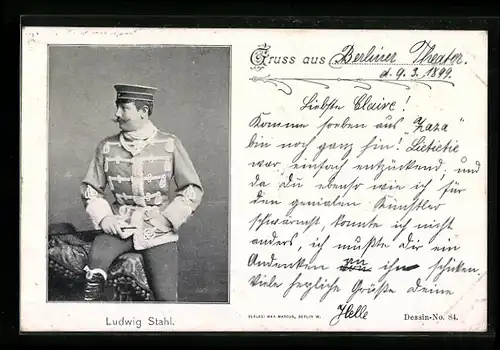 Gruss aus Berliner Theater.
d. 9. 3. 1899.
Liebste Claire!
Komme soeben aus „Zaza“
bin noch ganz hin! Lietietie
war einfach entzückend, und
da du ebenso wie ich für
den genialen Künstler
schwärmst, konnte ich nicht
anders, ich mußte dir ein
Andenken an ihn schicken.
Viele herzliche Grüße deine
Helle
Ludwig Stahl.
VERLAG: MAX MARCUS, BERLIN W.
Dessin-No. 84.